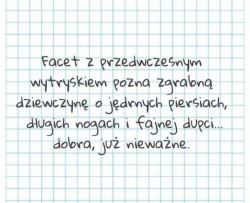 Facet z przedwczesnym
wytryskiem pozna zgrabną
dziewczynę o jędrnych piersiach,
długich nogach i fajnej dupci...
dobra, już nieważne.